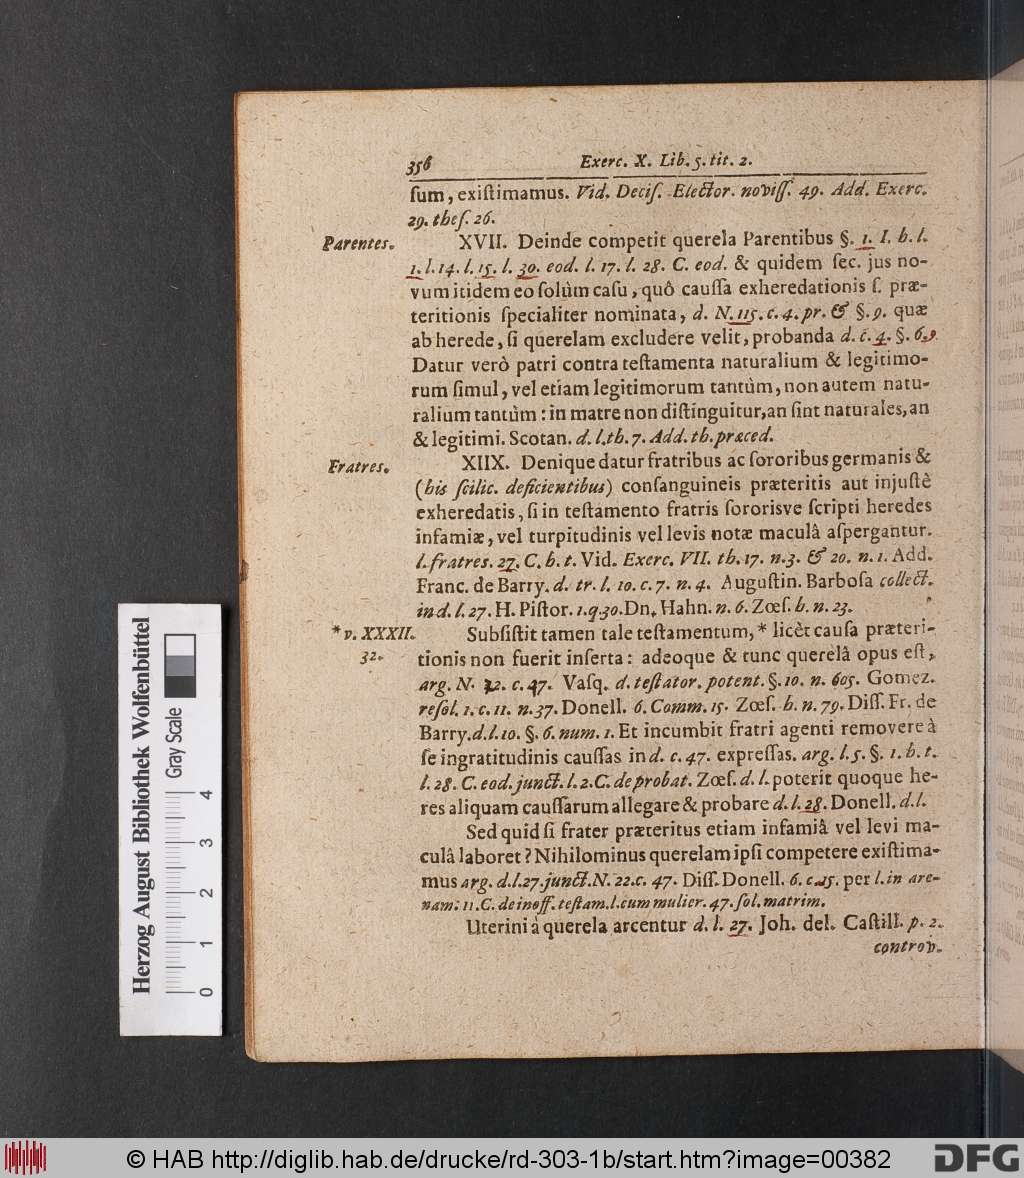 356 Exerc. X. Lib. 5. tit. 2.
ſum, exiſtimamus. Vid. Deciſ. Elector. noviſſ. 49. Add. Exerc.
29. theſ. 26.
Parentes.
XVII. Deinde competit querela Parentibus §. 1. I. h. l.
1. l. 14. l. 15. l. 30. eod. l. 17. l. 28. C. eod. & quidem ſec. jus no-
vum itidem eo ſolùm caſu, quô cauſſa exheredationis ſ. præ-
teritionis ſpecialiter nominata, d. N. 115. c. 4. pr. & §. 9. quæ
ab herede, ſi querelam excludere velit, probanda d. c. 4. §. 6. 9
Datur verò patri contra teſtamenta naturalium & legitimo-
rum ſimul, vel etiam legitimorum tantùm, non autem natu-
ralium tantùm: in matre non diſtinguitur, an ſint naturales, an
& legitimi. Scotan. d. l. th. 7. Add. th. præced.
Fratres.
XIIX. Denique datur fratribus ac ſororibus germanis &
(his ſcilic. deficientibus) conſanguineis præteritis aut injuſtè
exheredatis, ſi in teſtamento fratris ſororisve ſcripti heredes
infamiæ, vel turpitudinis vel levis notæ maculâ aſpergantur.
l. fratres. 27. C. h. t. Vid. Exerc. VII. th. 17. n. 3. & 20. n. 1. Add.
Franc. de Barry. d. tr. l. 10. c. 7. n. 4. Auguſtin. Barboſa collect.
in d. l. 27. H. Piſtor. 1. q. 30. Dn. Hahn. n. 6. Zœſ. h. n. 23.
* v. XXXII.
32.
Subſiſtit tamen tale teſtamentum, * licèt cauſa præteri-
tionis non fuerit inſerta: adeoque & tunc querelâ opus eſt,
arg. N. 32. c. 47. Vaſq. d. teſtator. potent. §. 10. n. 605. Gomez.
reſol. 1. c. 11. n. 37. Donell. 6. Comm. 15. Zœſ. h. n. 79. Diſſ. Fr. de
Barry. d. l. 10. §. 6. num. 1. Et incumbit fratri agenti removere à
ſe ingratitudinis cauſſas in d. c. 47. expreſſas. arg. l. 5. §. 1. h. t.
l. 28. C. eod. junct. l. 2. C. de probat. Zœſ. d. l. poterit quoque he-
res aliquam cauſſarum allegare & probare d. l. 28. Donell. d. l.
Sed quid ſi frater præteritus etiam infamiâ vel levi ma-
culâ laboret? Nihilominus querelam ipſi competere exiſtima-
mus arg. d. l. 27. junct. N. 22. c. 47. Diſſ. Donell. 6. c. 15. per l. in are-
nam: 11. C. de inoff. teſtam. l. cum mulier. 47. ſol. matrim.
Uterini á querela arcentur d. l. 27. Joh. del. Caſtill. p. 2.
controv.
Herzog August Bibliothek Wolfenbüttel
Gray Scale
0 1 2 3 4
© HAB http://diglib.hab.de/drucke/rd-303-1b/start.htm?image=00382
DFG